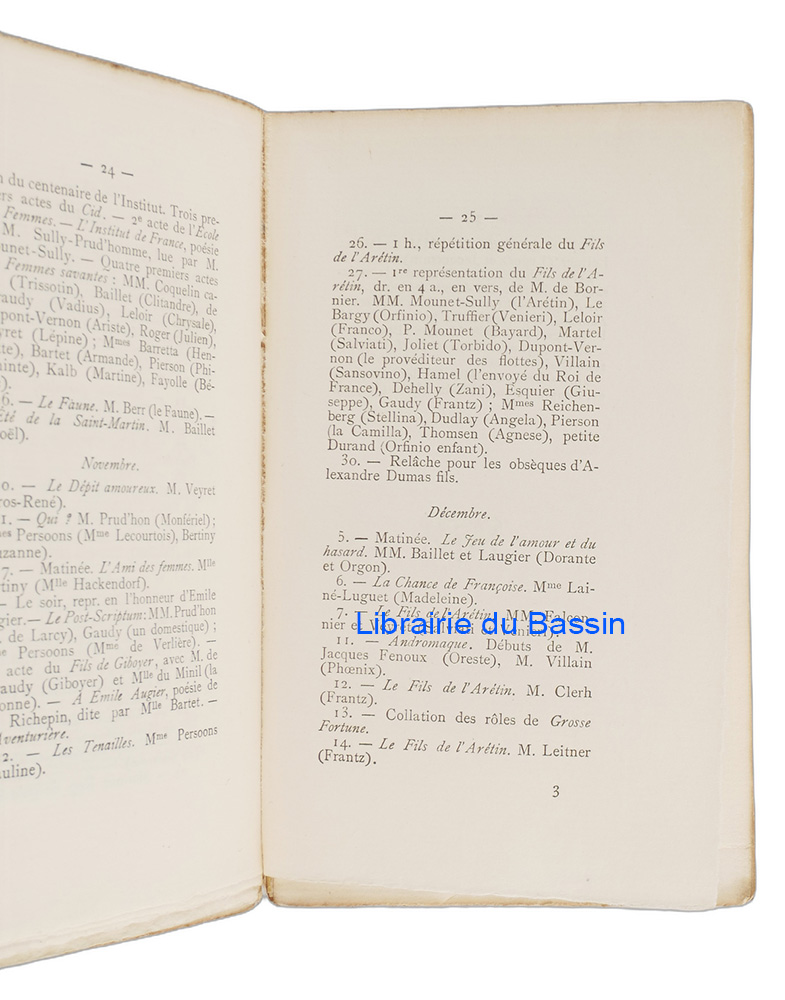 — 24 —
n du centenaire de l'Institut. Trois pre-
ers actes du Cid. — 2e acte de l'École
Femmes. — L'Institut de France, poésie
M. Sully-Prud'homme, lue par M.
ounet-Sully. — Quatre premiers actes
Femmes savantes : MM. Coquelin ca-
(Trissotin), Baillet (Clitandre), de
raudy (Vadius), Leloir (Chrysale),
pont-Vernon (Ariste), Roger (Julien),
yret (Lépine) ; Mmes Barretta (Hen-
tte), Bartet (Armande), Pierson (Phi-
inte), Kalb (Martine), Fayolle (Bé-
).
6. — Le Faune. M. Berr (le Faune). —
Été de la Saint-Martin. M. Baillet
oël).
Novembre.
0. — Le Dépit amoureux. M. Veyret
ros-René).
1. — Qui ? M. Prud'hon (Monfériel) ;
es Persoons (Mme Lecourtois), Bertiny
uzanne).
7. — Matinée. L'Ami des femmes. Mlle
rtiny (Mlle Hackendorf).
— Le soir, repr. en l'honneur d'Emile
gier. — Le Post-Scriptum : MM. Prud'hon
de Larcy), Gaudy (un domestique) ;
e Persoons (Mme de Verlière). —
acte du Fils de Giboyer, avec M. de
audy (Giboyer) et Mlle du Minil (la
onne). — A Emile Augier, poésie de
Richepin, dite par Mlle Bartet. —
Aventurière.
2. — Les Tenailles. Mme Persoons
auline).
— 25 —
26. — 1 h., répétition générale du Fils
de l'Arétin.
27. — 1re représentation du Fils de l'A-
rétin, dr. en 4 a., en vers, de M. de Bor-
nier. MM. Mounet-Sully (l'Arétin), Le
Bargy (Orfinio), Truffier (Venieri), Leloir
(Franco), P. Mounet (Bayard), Martel
(Salviati), Joliet (Torbido), Dupont-Ver-
non (le provéditeur des flottes), Villain
(Sansovino), Hamel (l'envoyé du Roi de
France), Dehelly (Zani), Esquier (Giu-
seppe), Gaudy (Frantz) ; Mmes Reichen-
berg (Stellina), Dudlay (Angela), Pierson
(la Camilla), Thomsen (Agnese), petite
Durand (Orfinio enfant).
30. — Relâche pour les obsèques d'A-
lexandre Dumas fils.
Décembre.
5. — Matinée. Le Jeu de l'amour et du
hasard. MM. Baillet et Laugier (Dorante
et Orgon).
6. — La Chance de Françoise. Mme Lai-
né-Luguet (Madeleine).
7. — Le Fils de l'Arétin. MM. Falcon-
nier et Veyret
Librairie du Bassin
11. — Andromaque. Débuts de M.
Jacques Fenoux (Oreste), M. Villain
(Phœnix).
12. — Le Fils de l'Arétin. M. Clerh
(Frantz).
13. — Collation des rôles de Grosse
Fortune.
14. — Le Fils de l'Arétin. M. Leitner
(Frantz).
3